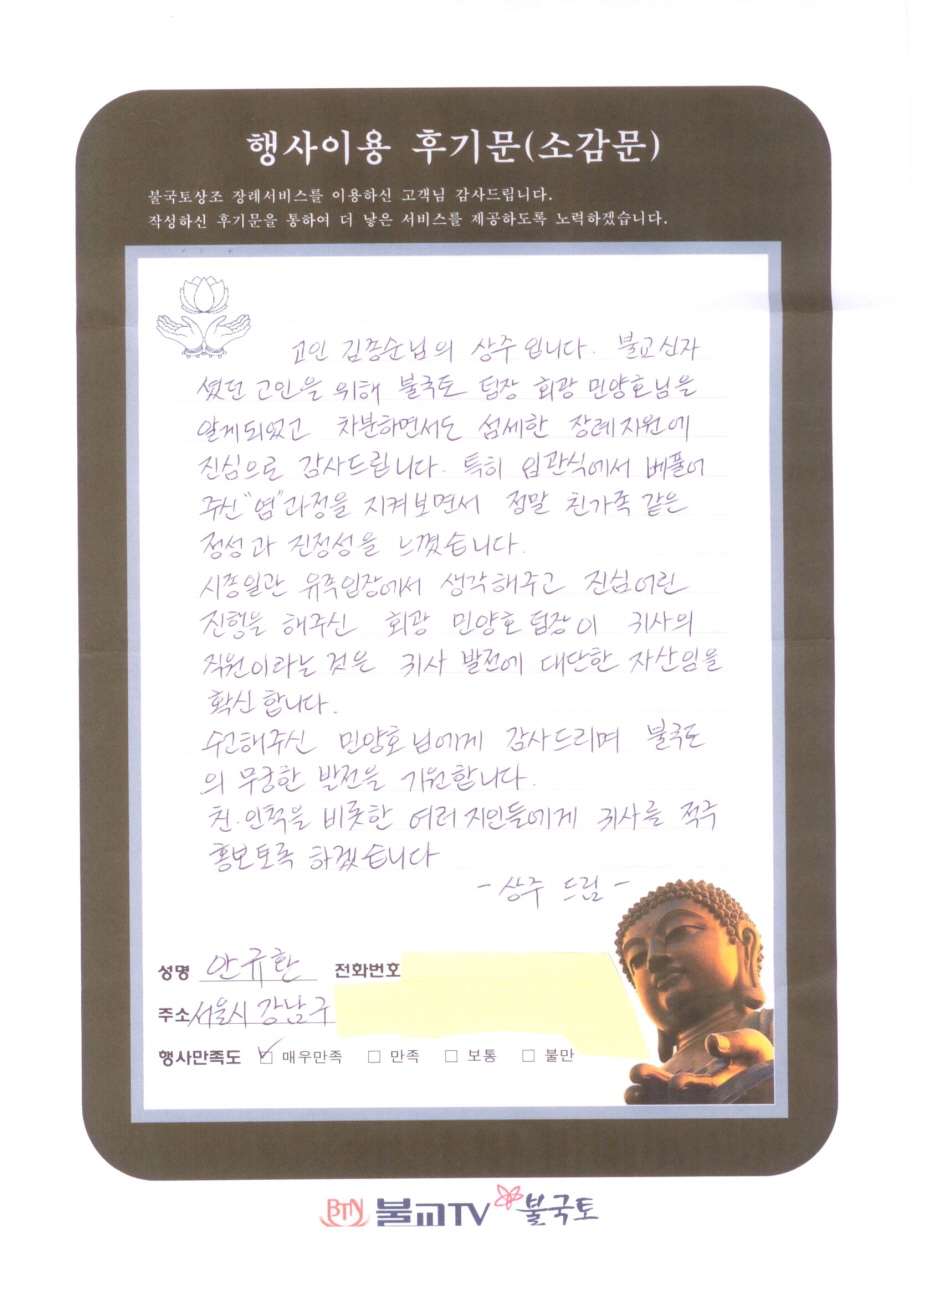 행사이용 후기문(소감문)
불국토상조 장례서비스를 이용하신 고객님 감사드립니다.
작성하신 후기문을 통하여 더 낳은 서비스를 제공하도록 노력하겠습니다.
고인 김종순님의 상주입니다. 불교신자
셨던 고인을 위해 불국토 팀장 회광 민양호님을
알게되었고 차분하면서도 섬세한 장례지원에
진심으로 감사드립니다. 특히 입관식에서 베풀어
주신 "염"과정을 지켜보면서 정말 친가족 같은
정성과 진정성을 느꼈습니다.
시종일관 유족입장에서 생각해주고 진심어린
진행을 해주신 회광 민양호 팀장이 귀사의
직원이라는 것은 귀사 발전에 대단한 자산임을
확신합니다.
수고해주신 민양호님에게 감사드리며 불국토
의 무궁한 발전을 기원합니다.
친·인척을 비롯한 여러 지인들에게 귀사를 적극
홍보토록 하겠습니다
- 상주 드림 -
성명 안규환 전화번호
주소 서울시 강남구
행사만족도 ☑ 매우만족 □ 만족 □ 보통 □ 불만
BTN 불교TV 불국토